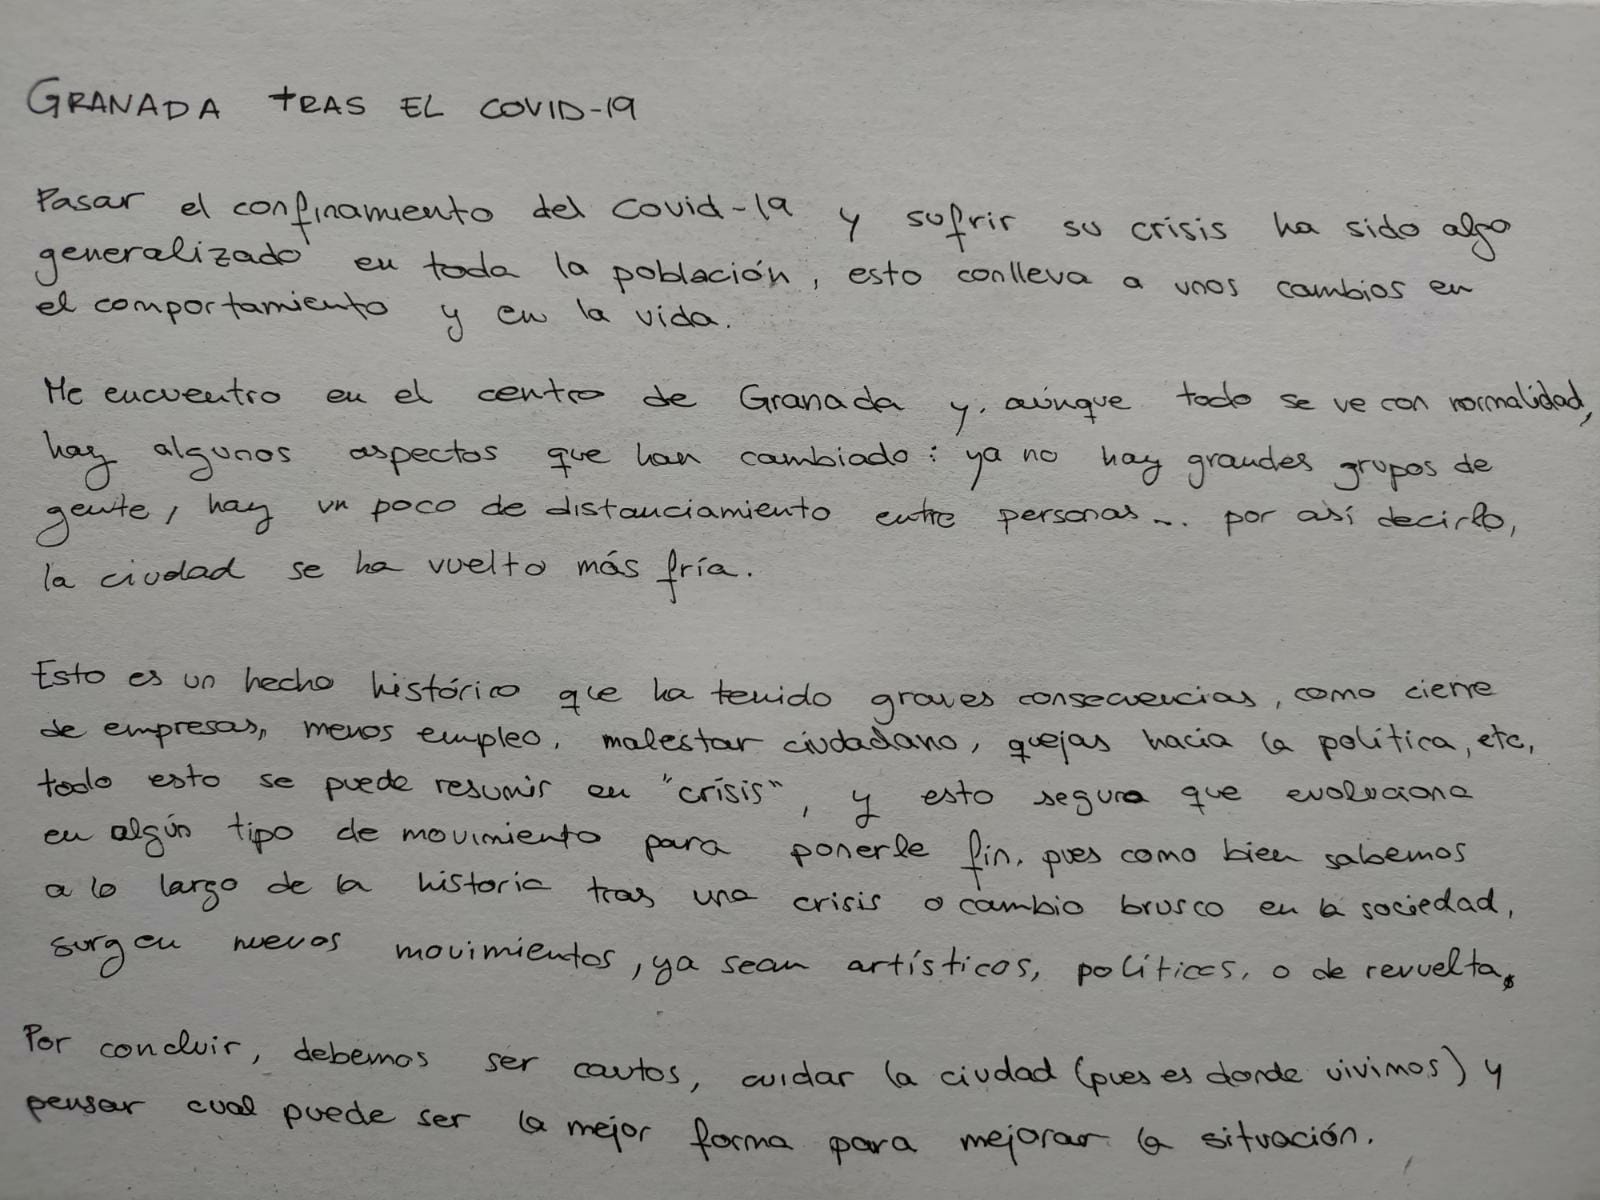 GRANADA TRAS EL COVID-19
Pasar el confinamiento del Covid-19 y sufrir su crisis ha sido algo
generalizado en toda la población, esto conlleva a unos cambios en
el comportamiento y en la vida.
Me encuentro en el centro de Granada y, aúnque todo se ve con normalidad,
hay algunos aspectos que han cambiado: ya no hay grandes grupos de
gente, hay un poco de distanciamiento entre personas... por así decirlo,
la ciudad se ha vuelto más fría.
Esto es un hecho histórico que ha tenido graves consecuencias, como cierre
de empresas, menos empleo, malestar ciudadano, quejas hacia la política, etc,
todo esto se puede resumir en "crísis", y esto seguro que evoluciona
en algún tipo de movimiento para ponerle fin, pues como bien sabemos
a lo largo de la historia tras una crisis o cambio brusco en la sociedad,
surgen nuevos movimientos, ya sean artísticos, políticos, o de revuelta.
Por concluir, debemos ser cautos, cuidar la ciudad (pues es donde vivimos) y
pensar cual puede ser la mejor forma para mejorar la situación.